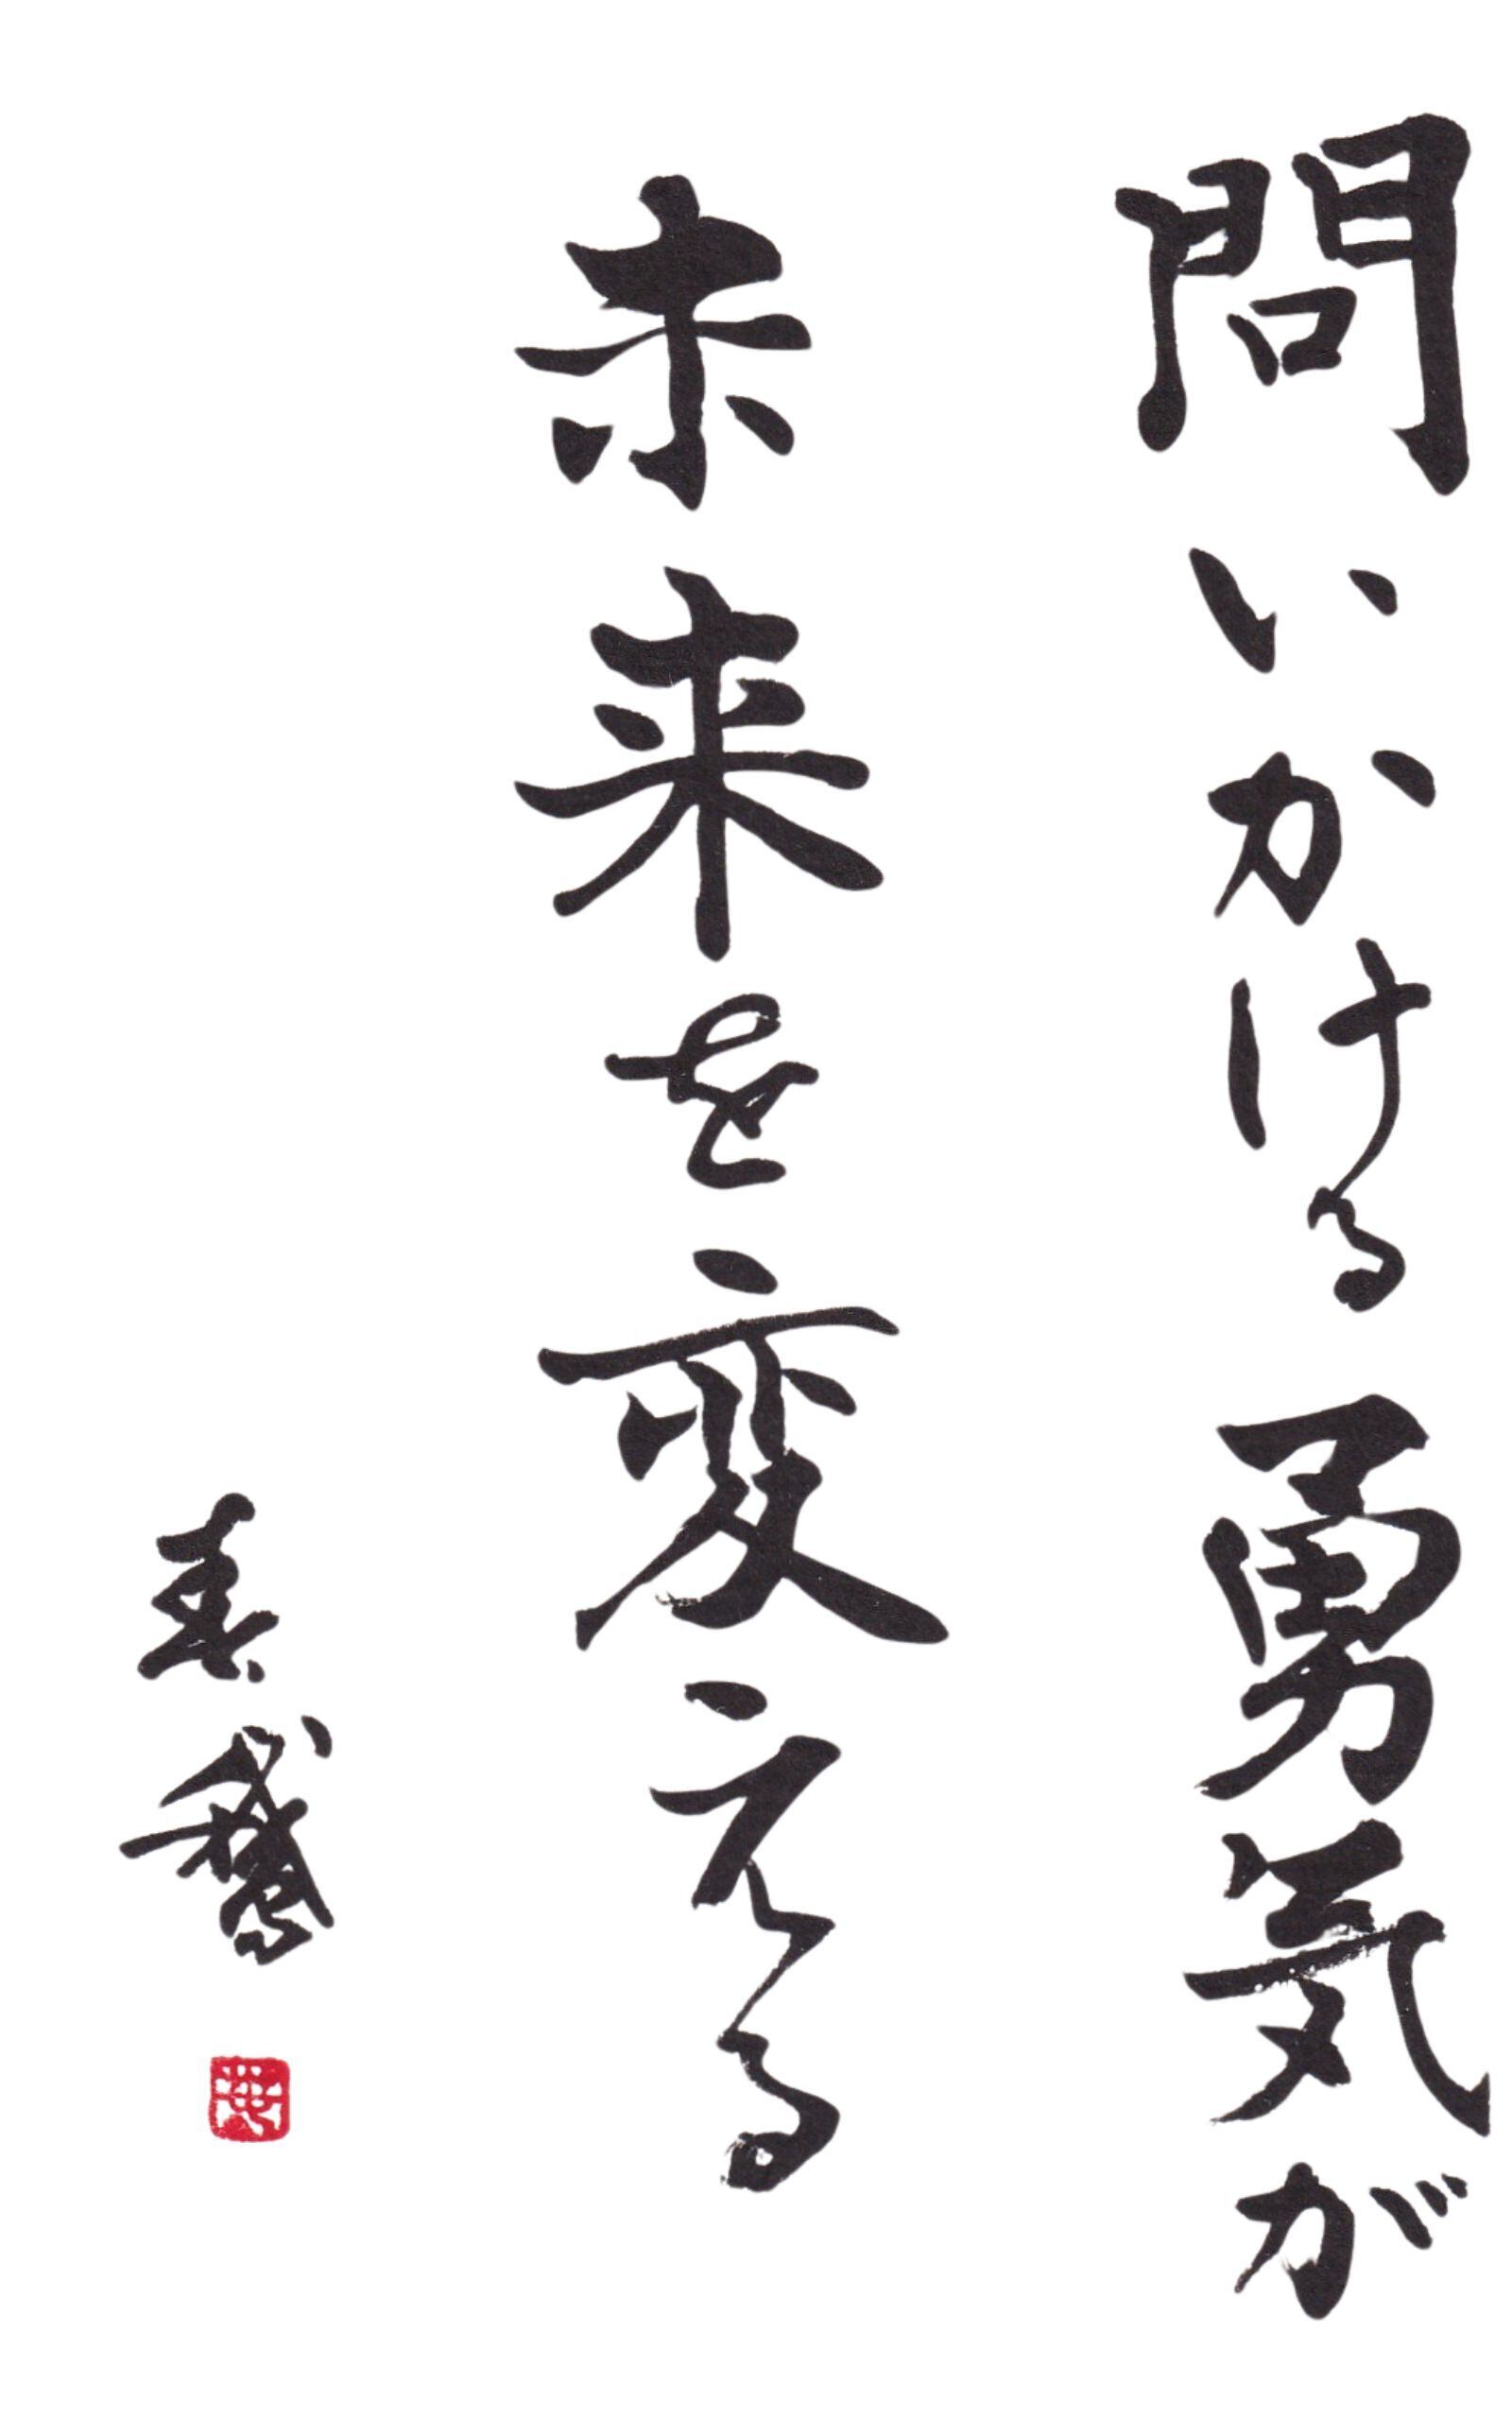 問いかける勇気が
未来を変える